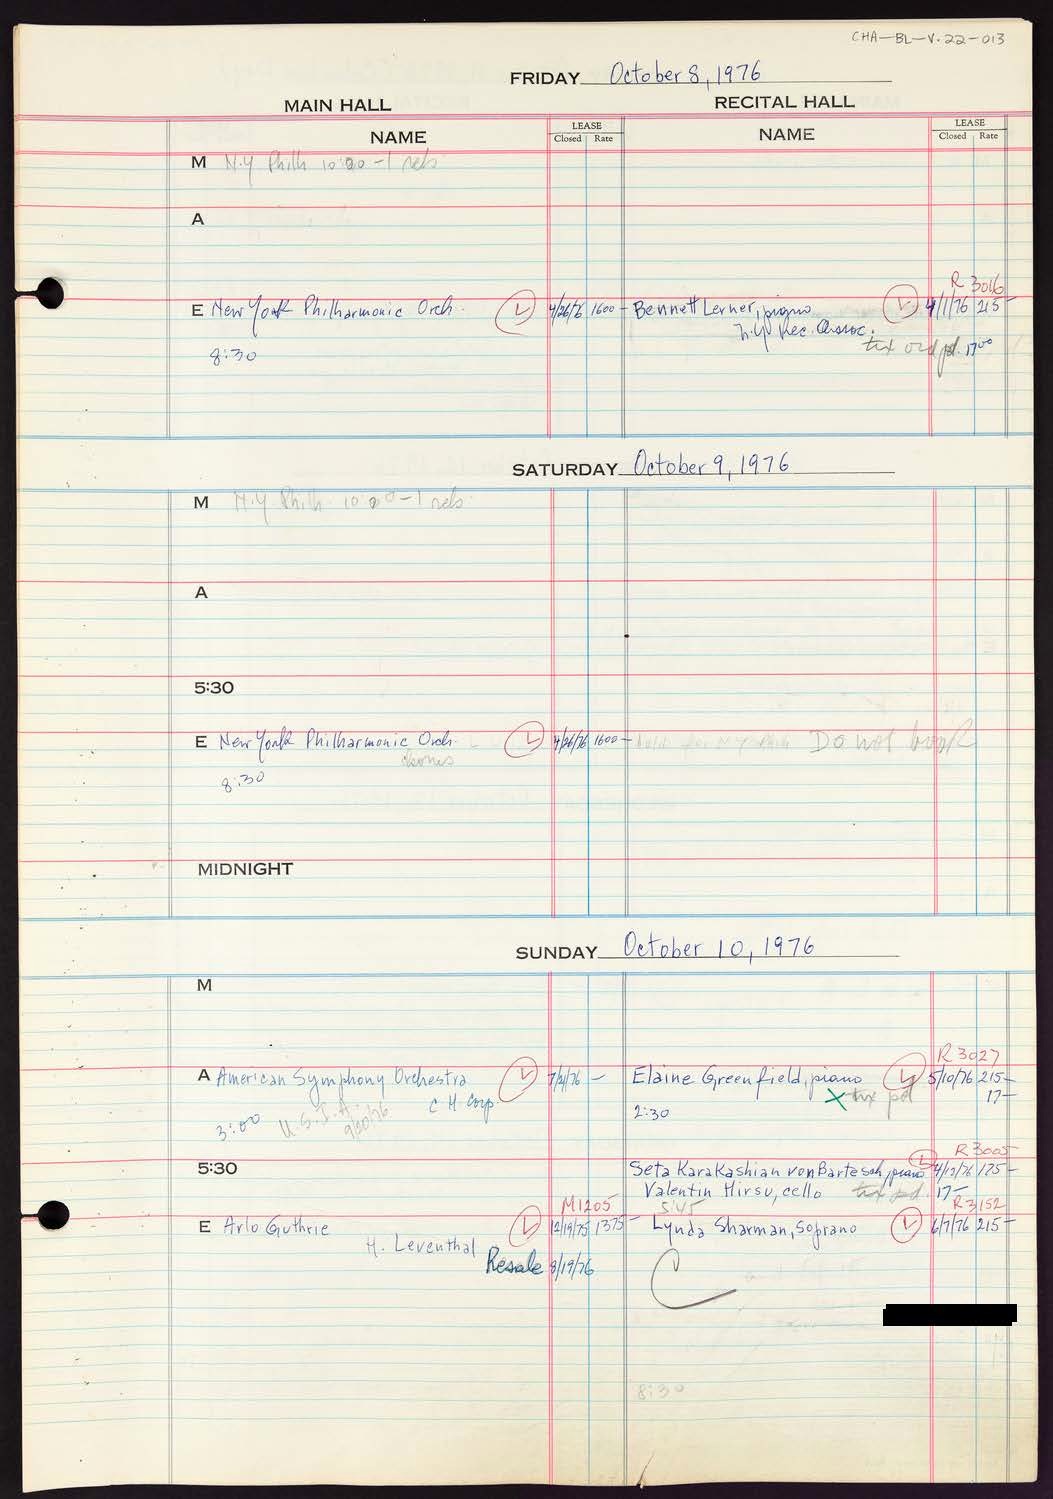 CHA-BL-V.22-013
FRIDAY October 8, 1976
MAIN HALL
RECITAL HALL
NAME
LEASE
Closed Rate
NAME
LEASE
Closed Rate
M N.Y. Philh 10:00-1 reh
A
R 3016
E New York Philharmonic Orch. 4/26/76 1600- Bennett Lerner, piano 4/1/76 215-
N.Y. Rec. Assoc.
8:30
tix ord pd. 17⁰⁰
SATURDAY October 9, 1976
M N.Y. Philh. 10:00-1 reh
A
5:30
E New York Philharmonic Orch. 4/26/76 1600- Hold for NY Phil Do not book
chorus
8:30
MIDNIGHT
SUNDAY October 10, 1976
M
R 3027
A American Symphony Orchestra 7/2/76 - Elaine Greenfield, piano 5/10/76 215-
C H Corp X tix pd 17-
3:00 U.S.I.A. 9/30/76
2:30
R 3005
5:30 Seta Karakashian von Bartesch, piano 4/12/76 175-
Valentin Hirsu, cello tix pd. 17-
M1205 5:45 R3152
E Arlo Guthrie 12/19/75 1375- Lynda Sharman, soprano 6/7/76 215-
H. Leventhal
Resale 8/19/76
C
8:30